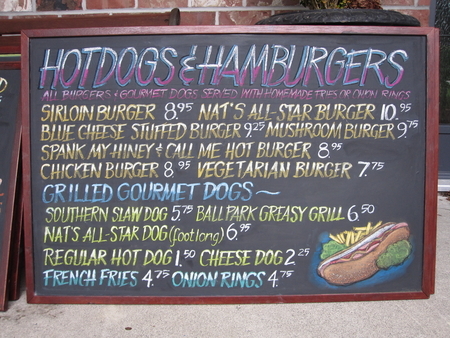 HOTDOGS & HAMBURGERS
ALL BURGERS & GOURMET DOGS SERVED WITH HOMEMADE FRIES OR ONION RINGS
SIRLOIN BURGER 8.95 NAT'S ALL-STAR BURGER 10.95
BLUE CHEESE STUFFED BURGER 9.25 MUSHROOM BURGER 9.75
SPANK MY HINEY & CALL ME HOT BURGER 8.95
CHICKEN BURGER 8.95 VEGETARIAN BURGER 7.75
GRILLED GOURMET DOGS ~
SOUTHERN SLAW DOG 5.75 BALL PARK GREASY GRILL 6.50
NAT'S ALL-STAR DOG (foot long) 6.95
REGULAR HOT DOG 1.50 CHEESE DOG 2.25
FRENCH FRIES 4.75 ONION RINGS 4.75